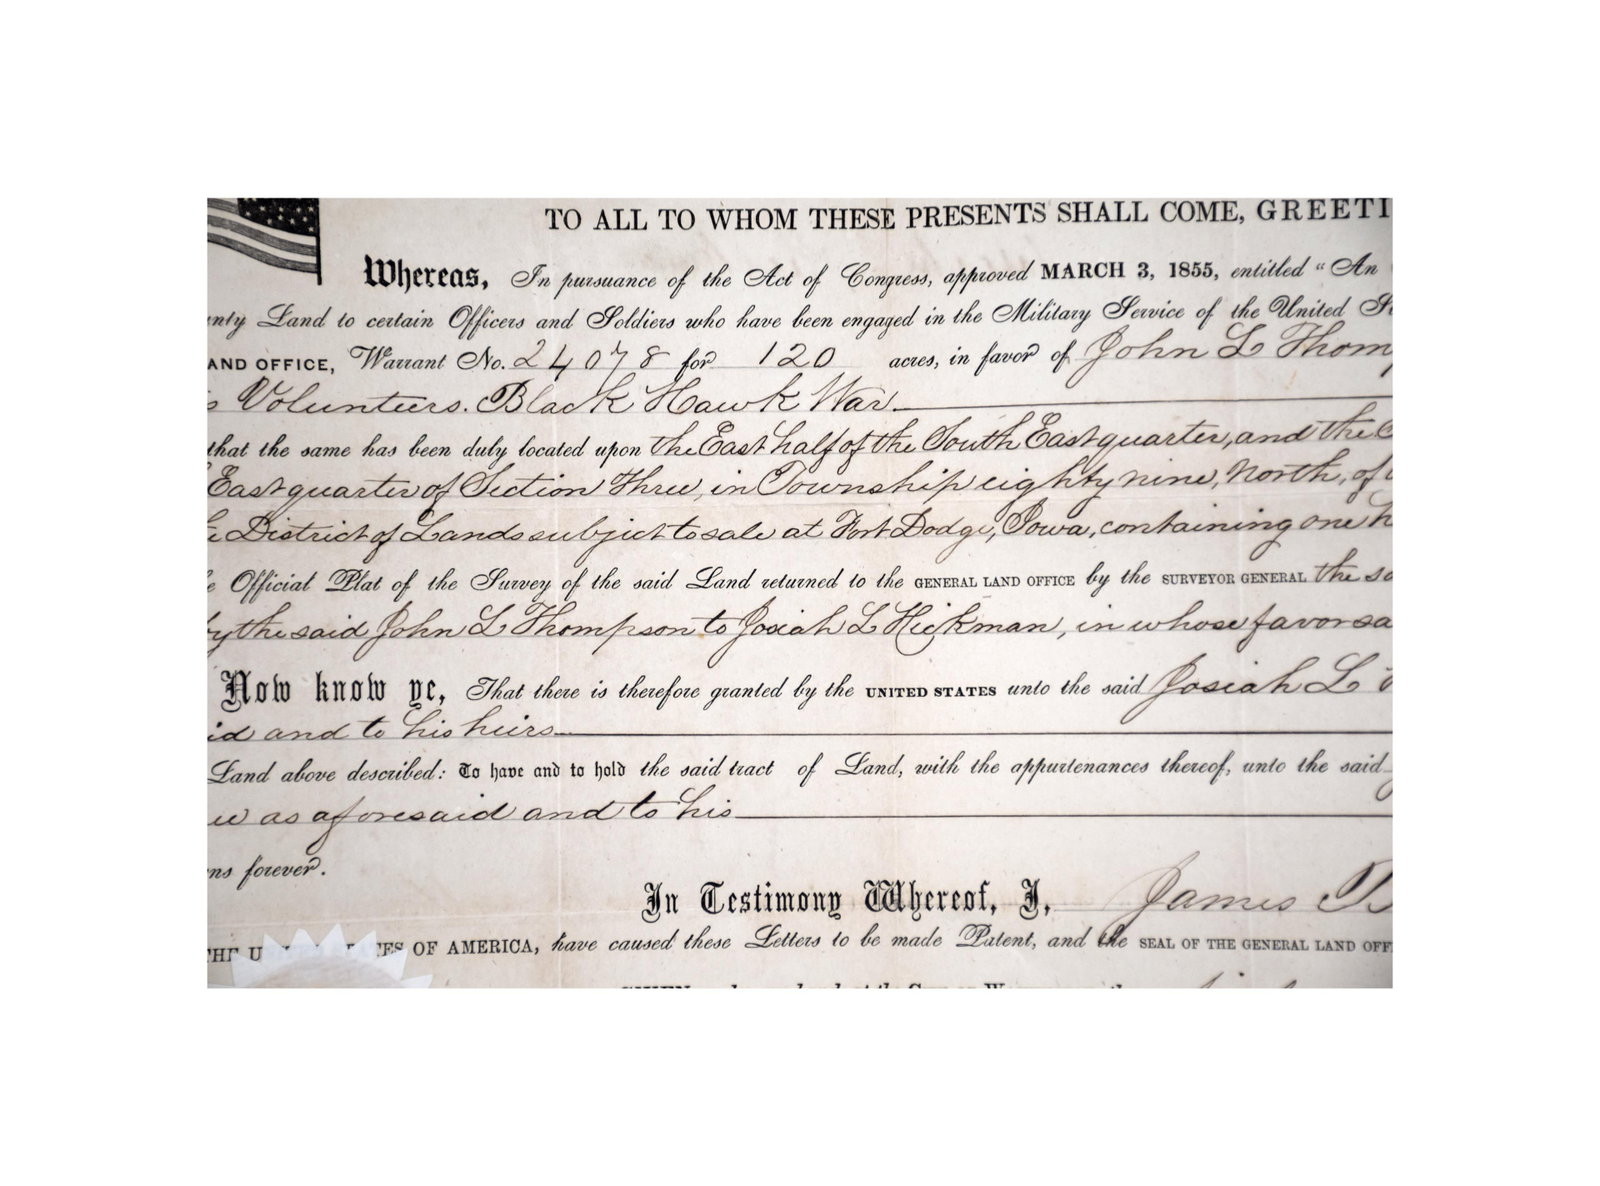 TO ALL TO WHOM THESE PRESENTS SHALL COME, GREETI
Whereas, In pursuance of the Act of Congress, approved MARCH 3, 1855, entitled "An
nty Land to certain Officers and Soldiers who have been engaged in the Military Service of the United S
AND OFFICE, Warrant No. 24078 for 120 acres, in favor of John L Thom
s Volunteers. Black Hawk War
that the same has been duly located upon the East half of the South East quarter, and the
East quarter of Section Three, in Township eighty nine, North, of
District of Lands subject to sale at Fort Dodge, Iowa, containing one h
e Official Plat of the Survey of the said Land returned to the GENERAL LAND OFFICE by the SURVEYOR GENERAL the sa
by the said John L Thompson to Josiah L Hickman, in whose favor sa
Now know ye, That there is therefore granted by the UNITED STATES unto the said Josiah L
id and to his heirs
Land above described: To have and to hold the said tract of Land, with the appurtenances thereof, unto the said
as aforesaid and to his
ns forever.
In Testimony Whereof, I, James B
THE U TES OF AMERICA, have caused these Letters to be made Patent, and the SEAL OF THE GENERAL LAND OFF